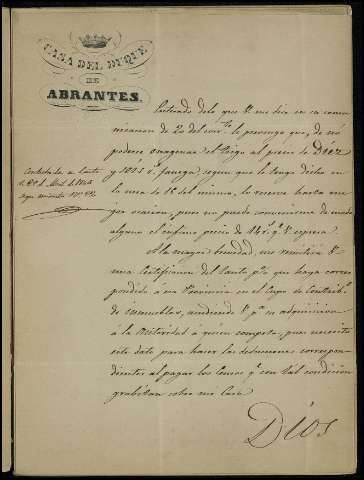 CASA DEL DUQUE
DE
ABRANTES.
Enterado de lo que V. me dice en su comu
nicacion de 20 del corr.te le prevengo que, de no
poderse enagenar el trigo al precio de
y fanega, segun que lo tengo dicho en
la mia de 1º del mismo, lo reserve hasta me
jor ocasion, pues no puede convenirme de modo
alguno el infimo precio de 14 r.s q.e V. espresa
A la mayor brevedad, me remitirá V.
una Certificacion del tanto p.r % que haya corres
pondido á esa Provincia en el Cupo de Contrib.n
de inmuebles, acudiendo V. p.a su adquisicion
á la Autoridad á quien competa, pues necesito
este dato para hacer las deducciones correspon
dientes al pagar los Censos q.e con tal condicion
gravitan sobre mi Casa
Dios
Contestada en Carta